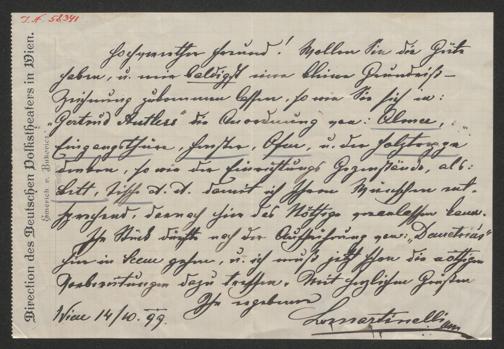 I.N. 58341
Direction des Deutschen Volkstheaters in Wien.
Emerich v. Bukovics
Hochgeehrter Freund! Wollen Sie die Güte
haben, u. mir baldigst eine kleine Grundriß-
Zeichnung zukommen lassen, so wie Sie sich in:
"Gertrud Antleß" die Anordnung von:
Eingangsthüre, Fenster, Ofen, u. der Holztreppe
denken, so wie die Einrichtungs Gegenstände, als:
Bett, Tische damit ich Ihren Wünschen ent-
sprechend, darnach hier das Nöthige veranlassen kann.
Ihr Stück dürfte nach der Aufführung von: "Demetrius"
hier in Scene gehen, u. ich muß jetzt schon die nöthigen
Vorbereitungen dazu treffen. Mit herzlichen Grüßen
Ihr ergebener
Wien 14/10. 99. L. Martinelli